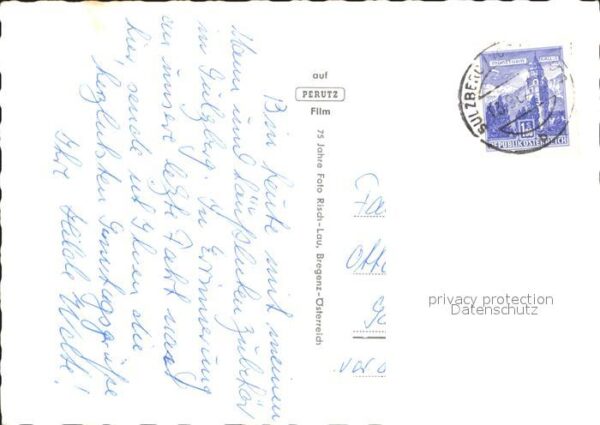 Bin heute mit meinem
Mann und
in Sulzberg. In Erinnerung
an unsere letzte Fahrt nach
hier, sende ich Ihnen die
herzlichsten Sonntagsgrüße
Ihre Hilde Wolte!
auf
PERUTZ
Film
75 Jahre Foto Risch-Lau, Bregenz-Österreich
SULZBERG
1.50
REPUBLIK ÖSTERREICH
Fa
Otto
vor
privacy protection
Datenschutz